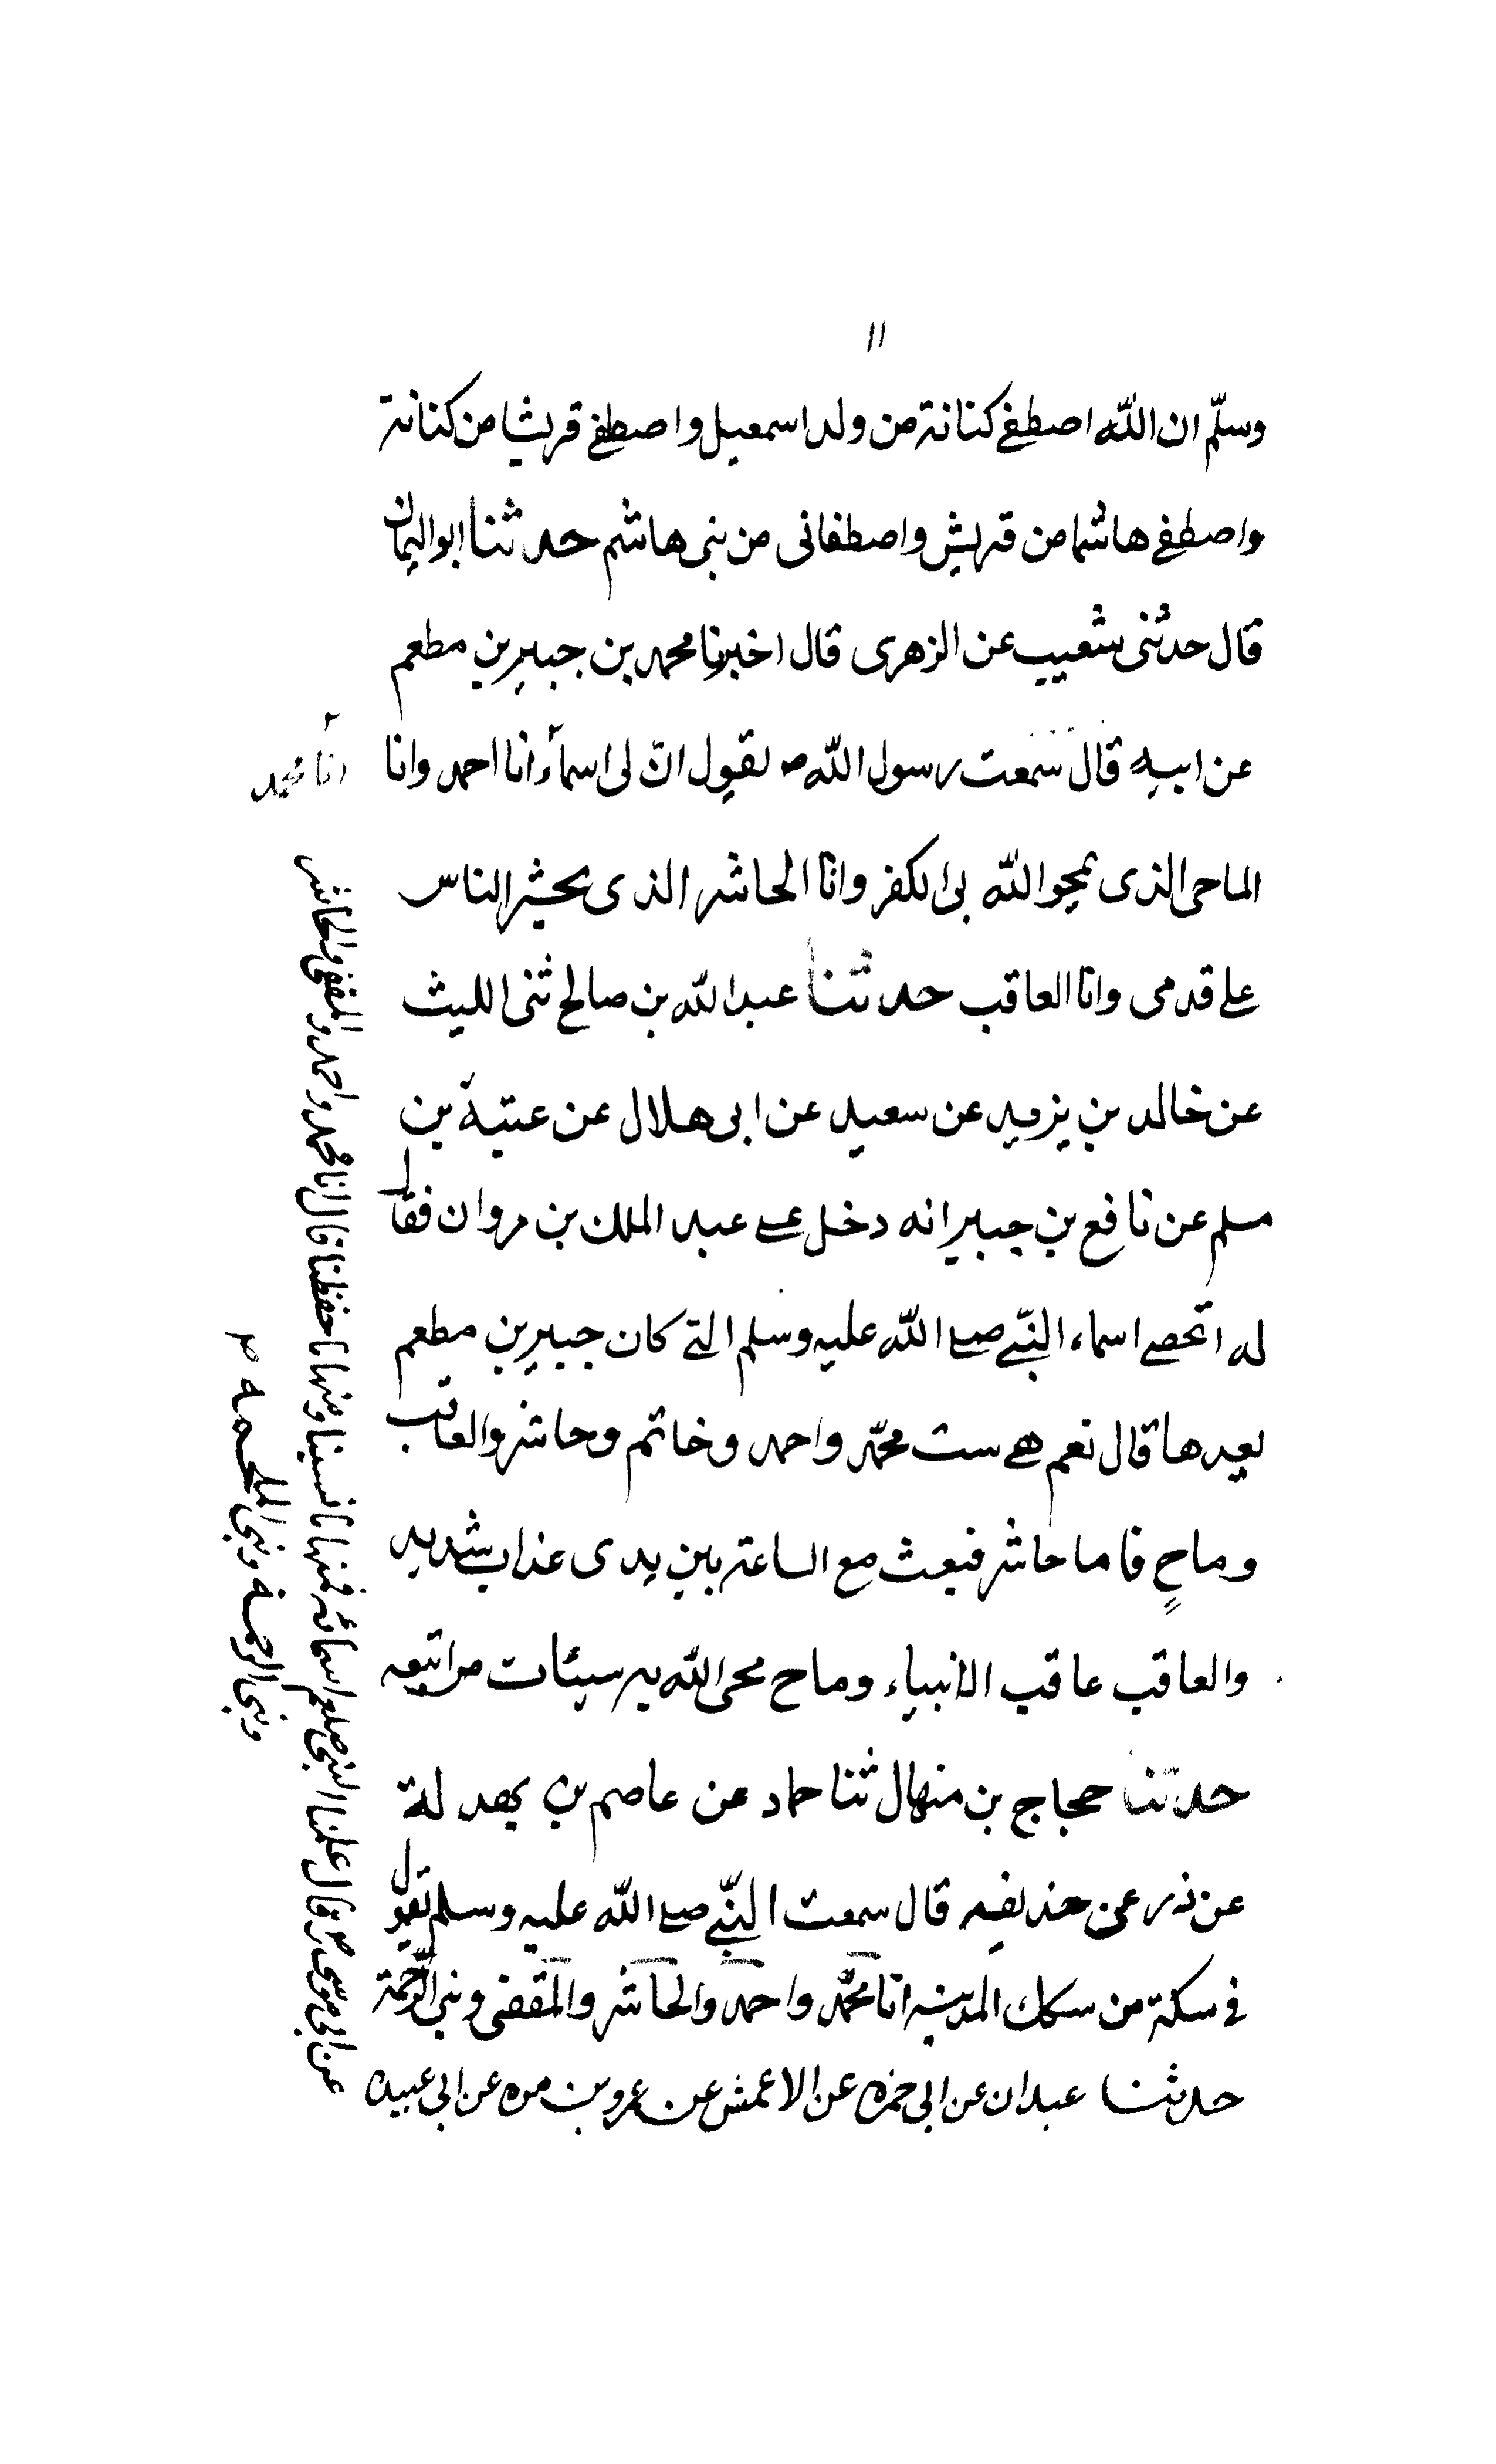 ١١
وسلّم ان اللّٰه اصطفے كنانة من ولد اسمعيل واصطفے قريشا من كنانة
واصطفے هاشما من قريش واصطفانى من بنى هاشم حدثنا ابواليمان
قال حدثنى شعيب عن الزهرى قال اخبرنا محمد بن جبير بن مطعم
عن ابيه قال سمعت رسول اللّٰه ص يقول انّ لى اسماءً انا احمد وانا
انا محمد
الماحى الذى يمحو اللّٰه بى الكفر وانا الحاشر الذى يحشر الناس
على قدمى وانا العاقب حدثنا عبد اللّٰه بن صالح ثنى الليث
عن خالد بن يزيد عن سعيد عن ابى هلال عن عتبة بن
مسلم عن نافع بن جبير انه دخل على عبد الملك بن مروان فقال
له اتحصے اسماء النّبے صلے اللّٰه عليه وسلم التے كان جبير بن مطعم
يعدها قال نعم هے ست محمّد واحمد وخاتم وحاشر والعاقب
وماحٍ فاما حاشر فبعث مع الساعة بين يدى عذاب شديد
والعاقب عاقب الانبياء وماح محى اللّٰه به سيئات من اتبعه
حدثنا حجاج بن منهال ثنا حماد عن عاصم بن بهدلة
عن ذر عن حذيفه قال سمعت النّبے صلے اللّٰه عليه وسلم يقول
فى سكة من سكك المدينه انا محمّد واحمد والحاشر والمقفى ونبى الرّحمة
حدثنا عبدان عن ابى حمزه عن الاعمش عن عمرو بن مره عن ابى عبيده
عن ابى موسى قال علمنا النبى صلعم اسمائه فمنها ما نسينا ومنها ما حفظنا قال انا محمد واحمد والمقفى والحاشر
ونبى الرحمة ونبى الملحمة